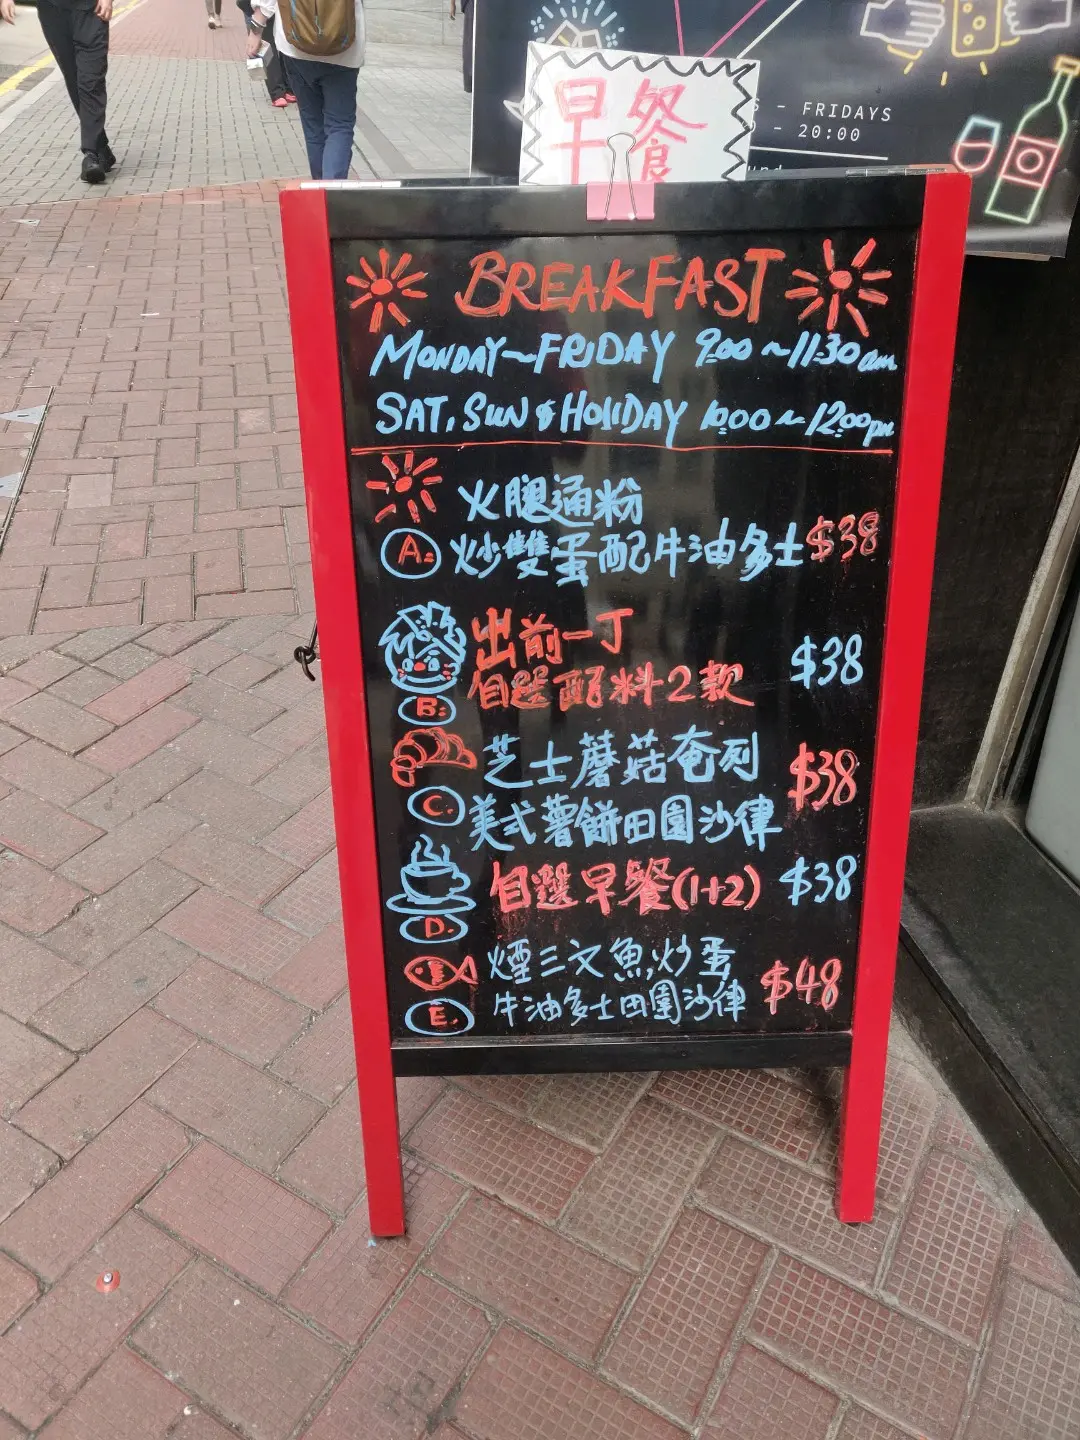 早餐
- FRIDAYS
- 20:00
BREAKFAST
MONDAY~FRIDAY 9:00~11:30am
SAT, SUN & HOLIDAY 10:00~12:00pm
火腿通粉
A: 炒雙蛋配牛油多士 $38
出前一丁
自選配料2款 $38
B:
芝士蘑菇奄列 $38
C. 美式薯餅田園沙律
自選早餐(1+2) $38
D.
煙三文魚,炒蛋 $48
E. 牛油多士田園沙律